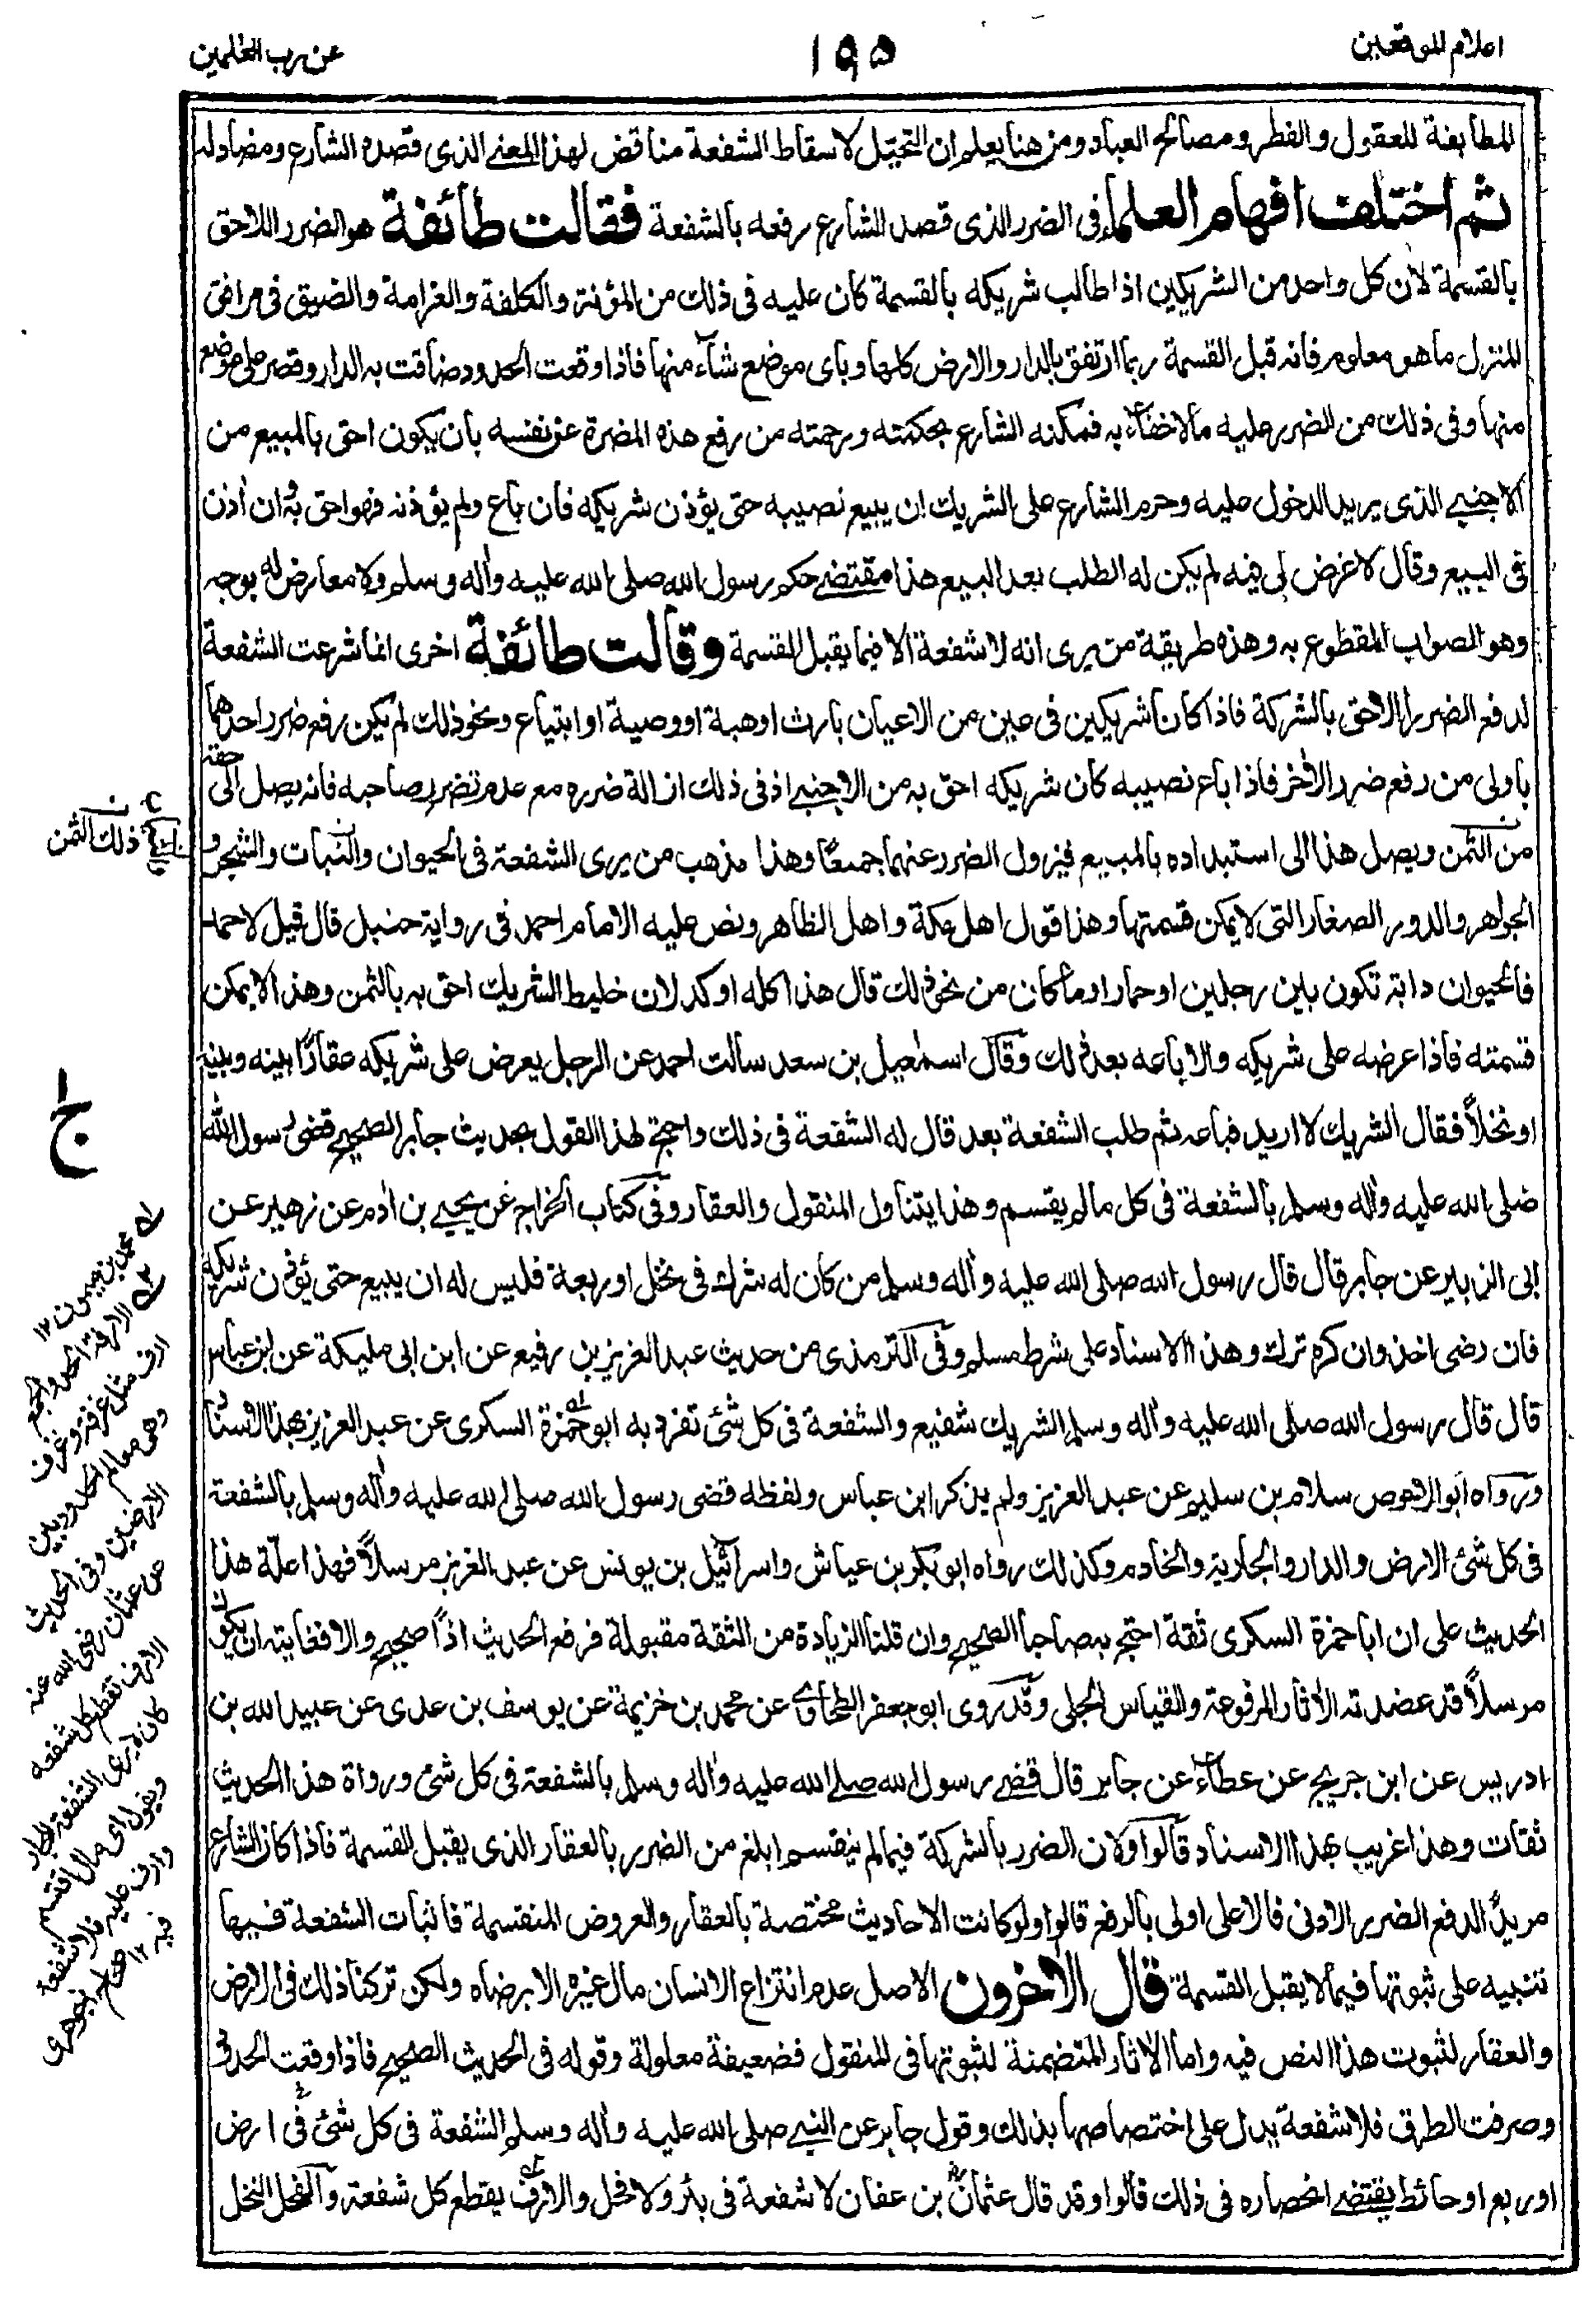 اعلام الموقعين
١٩٥
عن رب العلمين
المطابقة للعقول والفطر ومصالح العباد ومن هنا يعلم ان التحيّل لاسقاط الشفعة مناقض لهذا المعنى الذى قصده الشارع ومضاد له
ثم اختلفت افهام العلماء فى الضرر الذى قصد الشارع رفعه بالشفعة فقالت طائفة هو الضرر اللاحق
بالقسمة لان كل واحد من الشريكين اذا طالب شريكه بالقسمة كان عليه فى ذلك من المؤنة والكلفة والغرامة والضيق فى مرافق
المنزل ما هو معلوم فانه قبل القسمة ربما ارتفق بالدار والارض كلها وباى موضع شاء منها فاذا وقعت الحدود ضاقت به الدار وقصر على موضع
منها وفى ذلك من الضرر عليه ما لا خفاء به فمكنه الشارع بحكمته ورحمته من رفع هذه المضرة عن نفسه بان يكون احق بالمبيع من
الاجنبى الذى يريد الدخول عليه وحرم الشارع على الشريك ان يبيع نصيبه حتى يؤذن شريكه فان باع ولم يؤذنه فهو احق به وان اذن
فى البيع وقال لا غرض لى فيه لم يكن له الطلب بعد البيع هذا مقتضى حكم رسول الله صلى الله عليه واله وسلم ولا معارض له بوجه
وهو الصواب المقطوع به وهذه طريقة من يرى انه لا شفعة الا فيما يقبل القسمة وقالت طائفة اخرى انما شرعت الشفعة
لدفع الضرر اللاحق بالشركة فاذا كانا شريكين فى عين من الاعيان بارث او هبة او وصية او ابتياع ونحو ذلك لم يكن رفع ضرر احدهما
باولى من رفع ضرر الاخر فاذا باع نصيبه كان شريكه احق به من الاجنبى اذ فى ذلك ازالة ضرره مع عدم تضرر صاحبه فانه يصل الى حقه
من الثمن ويصل هذا الى استبداده بالمبيع فيزول الضرر عنهما جميعا وهذا مذهب من يرى الشفعة فى الحيوان والنبات والشجر و
الجواهر والدور الصغار التى لا يمكن قسمتها وهذا قول اهل مكة واهل الظاهر ونص عليه الامام احمد فى رواية حنبل قال قيل لاحمد
فالحيوان دابة تكون بين رجلين او حمار او ما كان من نحو ذلك قال هذا كله اوكد لان خليط الشريك احق به بالثمن وهذا لا يمكن
قسمته فاذا عرضه على شريكه والا باعه بعد ذلك وقال اسمعيل بن سعد سالت احمد عن الرجل يعرض على شريكه عقارًا بينه وبينه
او نخلًا فقال الشريك لا اريد فباعه ثم طلب الشفعة بعد قال له الشفعة فى ذلك واحتج لهذا القول بحديث جابر الصحيح قضى رسول الله
صلى الله عليه واله وسلم بالشفعة فى كل مالم يقسم وهذا يتناول المنقول والعقار وفى كتاب الخراج عن يحيى بن ادم عن زهير عن
ابى الزبير عن جابر قال قال رسول الله صلى الله عليه واله وسلم من كان له شرك فى نخل او ربعة فليس له ان يبيع حتى يؤذن شريكه
فان رضى اخذ وان كره ترك وهذا الاسناد على شرط مسلم وفى الترمذى من حديث عبد العزيز بن رفيع عن ابن ابى مليكة عن ابن عباس
قال قال رسول الله صلى الله عليه واله وسلم الشريك شفيع والشفعة فى كل شئ تفرد به ابو حمزة السكرى عن عبد العزيز بهذا الاسناد
ورواه ابو الاحوص سلام بن سليم عن عبد العزيز ولم يذكر ابن عباس ولفظه قضى رسول الله صلى الله عليه واله وسلم بالشفعة
فى كل شئ الارض والدار والجارية والخادم وكذلك رواه ابو بكر بن عياش واسرائيل بن يونس عن عبد العزيز مرسلًا فهذا علّة هذا
الحديث على ان ابا حمزة السكرى ثقة احتج به صاحبا الصحيح وان قلنا الزيادة من الثقة مقبولة فرفع الحديث اذًا صحيح والا فغايته ان يكون
مرسلًا قد عضدته الاثار المرفوعة والقياس الجلى وقد روى ابو جعفر الطحاوى عن محمد بن خزيمة عن يوسف بن عدى عن عبيد الله بن
ادريس عن ابن جريج عن عطاء عن جابر قال قضى رسول الله صلى الله عليه واله وسلم بالشفعة فى كل شئ ورواة هذا الحديث
ثقات وهذا غريب بهذا الاسناد قالوا ولان الضرر بالشركة فيما لم ينقسم ابلغ من الضرر بالعقار الذى يقبل القسمة فاذا كان الشارع
مريدًا لدفع الضرر الادنى فالاعلى اولى بالرفع قالوا ولو كانت الاحاديث مختصة بالعقار والعروض المنقسمة فاثبات الشفعة فيها
تنبيه على ثبوتها فيما لا يقبل القسمة قال الاخرون الاصل عدم انتزاع الانسان مال غيره الا برضاه ولكن تركنا ذلك فى الارض
والعقار لثبوت هذا النص فيه واما الاثار المتضمنة لثبوتها فى المنقول فضعيفة معلولة وقوله فى الحديث الصحيح فاذا وقعت الحدود
وصرفت الطرق فلا شفعة يدل على اختصاصها بذلك وقول جابر عن النبى صلى الله عليه واله وسلم الشفعة فى كل شئ فى ارض
او ربع او حائط يقتضى انحصاره فى ذلك قالوا وقد قال عثمان بن عفان لا شفعة فى بئر ولا فحل والارف يقطع كل شفعة والفحل النخل
ذلك الثمن
ج
محمد بن ميمون ١٢
الارفة الحد والجمع
ارف مثل غرفة وغرف
وهى معالم الحدود بين
الارضين وفى الحديث
عن عثمان رضى الله عنه
الارف تقطع كل شفعه
كان لا يرى الشفعة للجار
ويقول اى مال اقتسم
وارف عليه فلا شفعة
فيه ١٢ صحاح جوهرى